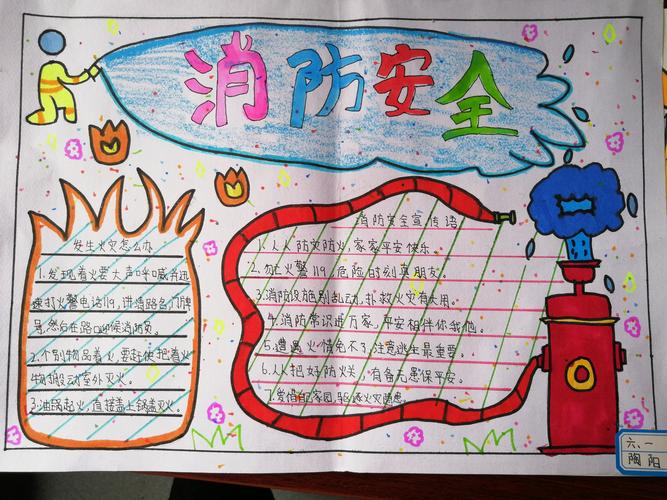 消防安全
发生火灾怎么办
1.发现着火要大声呼喊并迅
速打火警电话119,讲清路名、门牌
号,然后在路口候消防员。
2.个别物品着火,要赶快把着火
物搬动室外灭火。
3.油锅起火,直接盖上锅盖灭火。
消防安全宣传语
1.人人防灾防火,家家平安快乐。
2.勿忘火警119,危险时刻真朋友。
3.消防设施别乱动,扑救火灾有大用。
4.消防常识进万家,平安相伴你我他。
5.遭遇火情免不了,注意逃生最重要。
6.人人把好防火关,有备无患保平安。
7.爱惜自己家园,
火灾隐患
六、一
陶阳